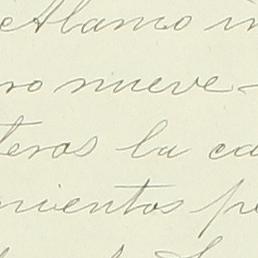 Alamo in
ro nueve-
teros la ca
mientos pe